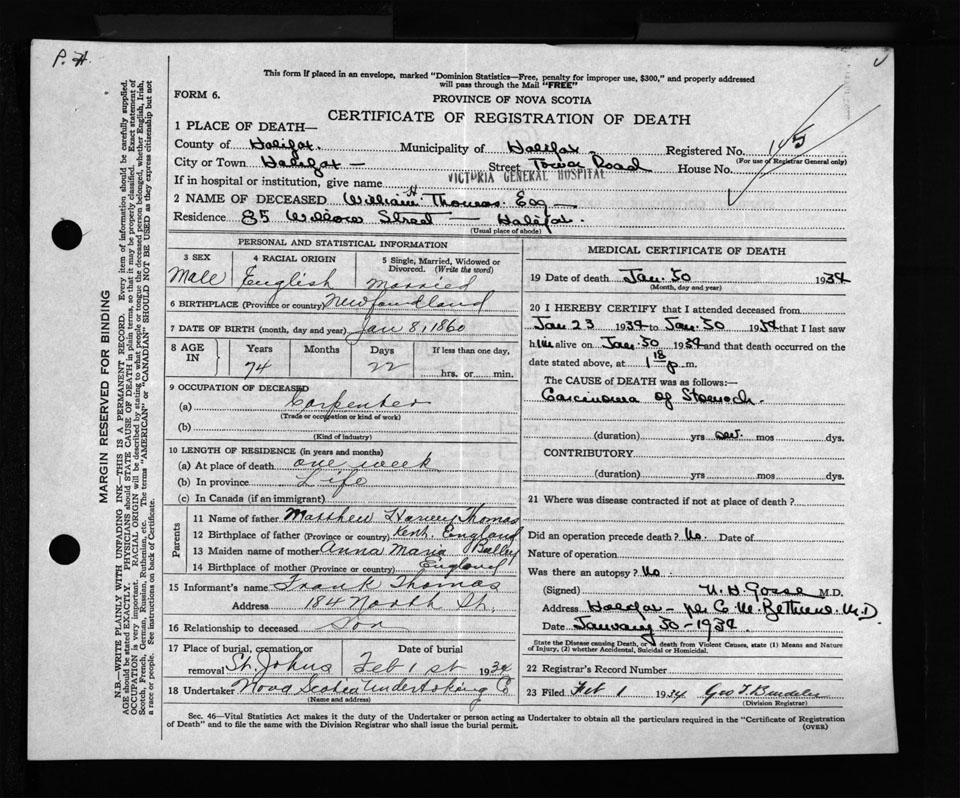 P. H.
This form if placed in an envelope, marked "Dominion Statistics—Free, penalty for improper use, $300," and properly addressed
will pass through the Mail "FREE"
FORM 6.
PROVINCE OF NOVA SCOTIA
CERTIFICATE OF REGISTRATION OF DEATH
1 PLACE OF DEATH—
County of Halifax. Municipality of Halifax Registered No. 145
(For use of Registrar General only)
City or Town Halifax — Street Tower Road House No.
If in hospital or institution, give name VICTORIA GENERAL HOSPITAL
2 NAME OF DECEASED William H Thomas Esq —
Residence 85 Willow Street — Halifax.
(Usual place of abode)
PERSONAL AND STATISTICAL INFORMATION
3 SEX Male
4 RACIAL ORIGIN English
5 Single, Married, Widowed or Divorced. (Write the word) Married
6 BIRTHPLACE (Province or country) Newfoundland
7 DATE OF BIRTH (month, day and year) Jan 8, 1860
8 AGE IN Years 74 Months Days 22 If less than one day, hrs. or min.
9 OCCUPATION OF DECEASED
(a) Carpenter
(Trade or occupation or kind of work)
(b)
(Kind of industry)
10 LENGTH OF RESIDENCE (in years and months)
(a) At place of death one week
(b) In province Life
(c) In Canada (if an immigrant)
Parents
11 Name of father Matthew Harvey Thomas
12 Birthplace of father (Province or country) Kent. England
13 Maiden name of mother Anna Maria
14 Birthplace of mother (Province or country) England
15 Informant's name Frank Thomas
Address 184 North St.
16 Relationship to deceased Son
17 Place of burial, cremation, or removal St. Johns
Date of burial Feb 1st 1934
18 Undertaker Nova Scotia Undertaking Co
(Name and address)
MEDICAL CERTIFICATE OF DEATH
19 Date of death Jan. 30 1934
(Month, day and year)
20 I HEREBY CERTIFY that I attended deceased from
Jan 23 1934 to Jan. 30 1934 that I last saw
him alive on Jan. 30 1934 and that death occurred on the
date stated above, at 1 18 p. m.
The CAUSE of DEATH was as follows:—
Carcinoma of Stomach.
(duration) yrs sev. mos dys.
CONTRIBUTORY
(duration) yrs mos dys.
21 Where was disease contracted if not at place of death?
Did an operation precede death? No. Date of
Nature of operation
Was there an autopsy? No.
(Signed) N. H. Gosse M.D.
Address Halifax — per C. M. Bethune. M.D.
Date January 30 - 1934.
State the Disease causing Death, or, in death from Violent Causes, state (1) Means and Nature
of Injury, (2) whether Accidental, Suicidal or Homicidal.
22 Registrar's Record Number
23 Filed Feb 1 1934 Geo T.
(Division Registrar)
Sec. 46—Vital Statistics Act makes it the duty of the Undertaker or person acting as Undertaker to obtain all the particulars required in the "Certificate of Registration
of Death" and to file the same with the Division Registrar who shall issue the burial permit. (OVER)
MARGIN RESERVED FOR BINDING
N.B.—WRITE PLAINLY WITH UNFADING INK—THIS IS A PERMANENT RECORD. Every item of information should be carefully supplied.
AGE should be stated EXACTLY. PHYSICIANS should STATE CAUSE OF DEATH in plain terms, so that it may be properly classified. Exact statement of
OCCUPATION is very important. RACIAL ORIGIN will be described by stating to what people or tongue the deceased person belonged, whether English, Irish,
Scotch, French, German, Russian, Ruthenian, etc. The terms "AMERICAN" or "CANADIAN" SHOULD NOT BE USED as they express citizenship but not
a race or people. See instructions on back of Certificate.